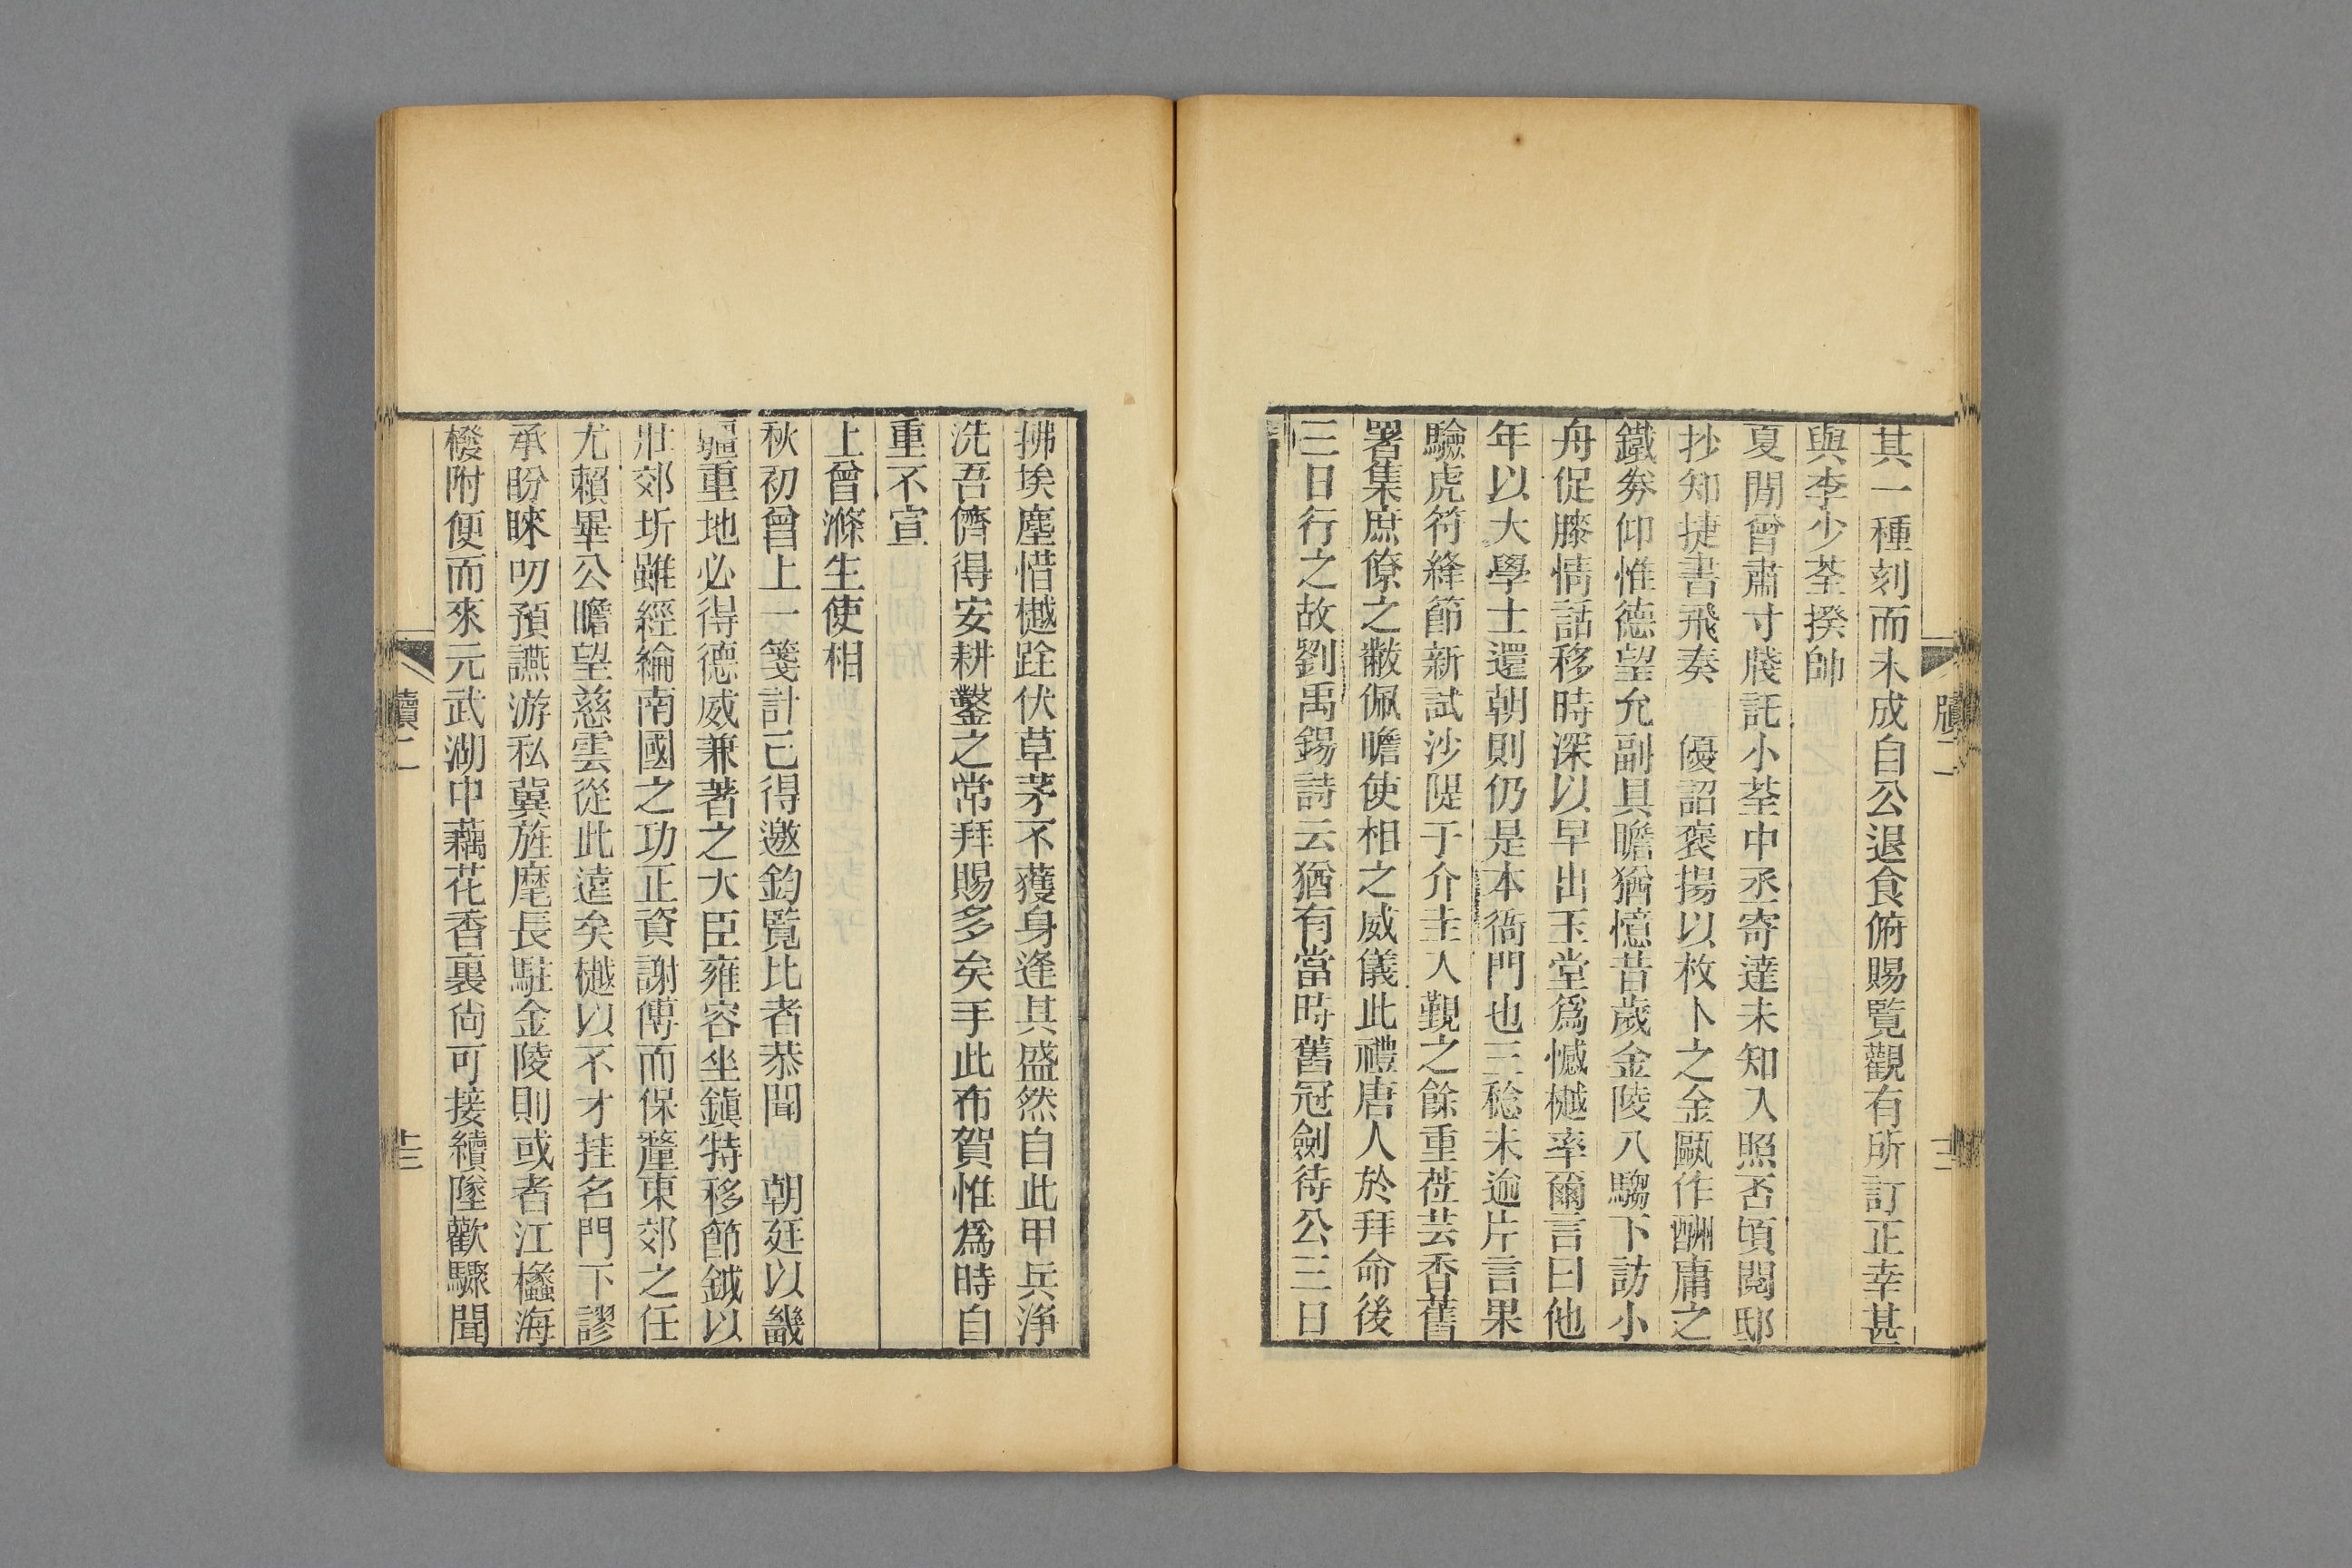 牘二
十二
其一種刻而未成自公退食俯賜覽觀有所訂正幸甚
與李少荃揆帥
夏閒曾肅寸牋託小荃中丞寄達未知入照否頃閱邸
抄知捷書飛奏　優詔褒揚以枚卜之金甌作酬庸之
鐵券仰惟德望允副具瞻猶憶昔歲金陵八騶下訪小
舟促膝情話移時深以早出玉堂爲憾樾率爾言曰他
年以大學士還朝則仍是本衙門也三稔未逾片言果
驗虎符絳節新試沙隄于介圭入覲之餘重莅芸香舊
署集庶僚之黻佩瞻使相之威儀此禮唐人於拜命後
三日行之故劉禹錫詩云猶有當時舊冠劍待公三日
拂埃塵惜樾跧伏草茅不獲身逢其盛然自此甲兵淨
洗吾儕得安耕鑿之常拜賜多矣手此布賀惟爲時自
重不宣
上曾滌生使相
秋初曾上一箋計已得邀鈞覽比者恭聞　朝廷以畿
疆重地必得德威兼著之大臣雍容坐鎭特移節鉞以
壯郊圻雖經綸南國之功正資謝傅而保釐東郊之任
尤賴畢公瞻望慈雲從此遠矣樾以不才挂名門下謬
承盼睞叨預讌游私冀旌麾長駐金陵則或者江檥海
橃附便而來元武湖中藕花香裏尙可接續墜歡驟聞
牘二
十三